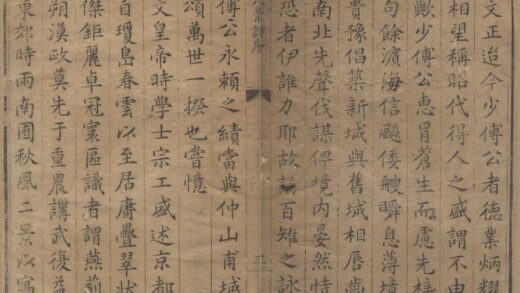 文正迨今少傅公者德業炳耀
相望稱昭代得人之盛謂不由
歟少傅公惠冒蒼生而慮先
句餘濱海信飈倭艘瞬息薄境
貴豫倡築新城與舊城相唇齒
南北先聲伐謀俾境内晏然恃
恐者伊誰力耶故百雉之詠
詩序
二
傅公永賴之績當與仲山甫城
頌萬世一揆也嘗憶
文皇帝時學士宗工盛述京都
自瓊島春雲以至居庸疊翠狀
傑鉅麗卓冠寰區識者謂燕薊
朔漠歐奠先于重農講武復
東郊時雨南囿秋風二景以寫